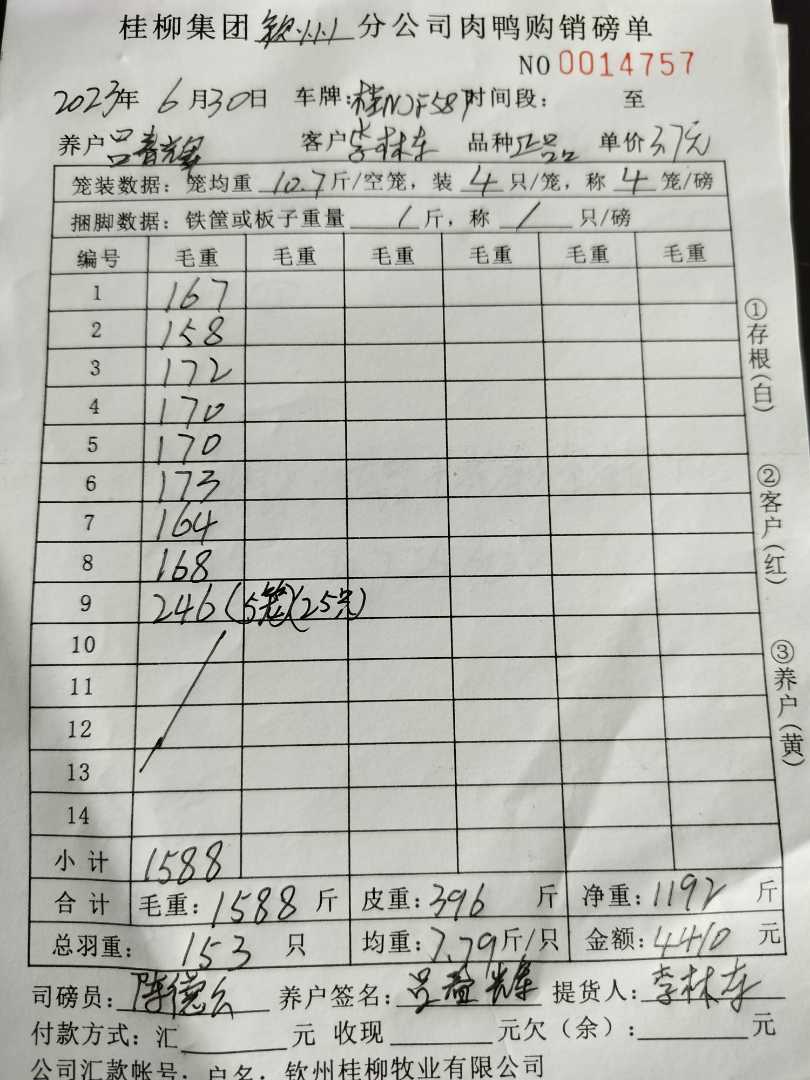 桂柳集团钦州分公司肉鸭购销磅单
NO 0014757
2023年 6月30日 车牌:桂NJF587 时间段: 至
养户 吕春辉 客户 李林东 品种 正品 单价 3.7元
笼装数据: 笼均重 10.7 斤/空笼, 装 4 只/笼, 称 4 笼/磅
捆脚数据: 铁筐或板子重量 / 斤, 称 / 只/磅
编号 毛重 毛重 毛重 毛重 毛重 毛重
1 167
2 158
3 172
4 170
5 170
6 173
7 164
8 168
9 246(5笼)(25只)
10
11
12
13
14
小计 1588
合计 毛重:1588 斤 皮重:396 斤 净重:1192 斤
总羽重: 153 只 均重:7.79斤/只 金额:4410 元
司磅员: 陈德 养户签名: 吕 辉 提货人: 李林东
付款方式:汇 元 收现 元欠(余): 元
公司汇款帐号: 户名: 钦州桂柳牧业有限公司
①存根(白)
②客户(红)
③养户(黄)